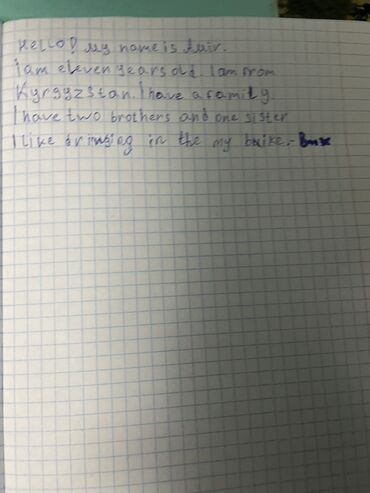 Hello! My name is Amir.
I am eleven years old. I am from
Kyrgyzstan. I have a family
I have two brothers and one sister
I like driving in the my buike.- Bmx